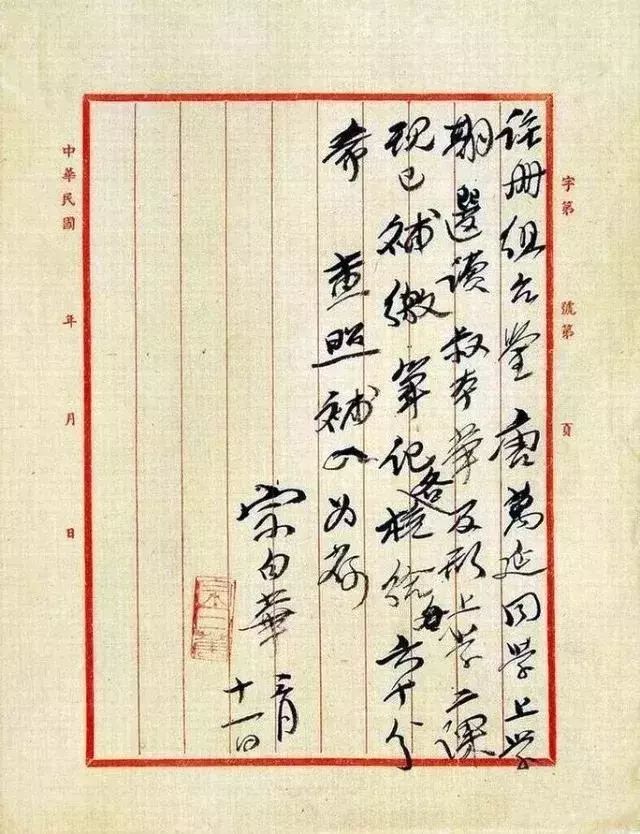 字第 號第 頁
註冊組公鑒 唐萬延同學上學
期選讀叔本華及形上學二課
現已補繳筆記各核給六十分
希 查照補入為荷
宗白華
月
十一日
宗白華
中華民國 年 月 日